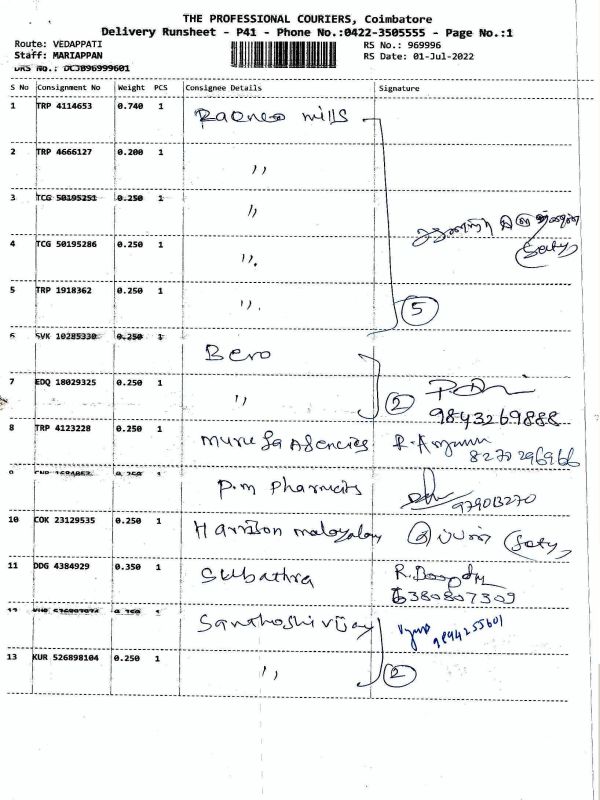 THE PROFESSIONAL COURIERS, Coimbatore
Delivery Runsheet - P41 - Phone No.:0422-3505555 - Page No.:1
Route: VEDAPPATI RS No.: 969996
Staff: MARIAPPAN RS Date: 01-Jul-2022
DRS No.: DCJB96999601
S No Consignment No Weight PCS Consignee Details Signature
1 TRP 4114653 0.740 1 mills
2 TRP 4666127 0.200 1 ,,
3 TCG 50195251 0.250 1 ,,
4 TCG 50195286 0.250 1 ,,
5 TRP 1918362 0.250 1 ,, 5
6 SVK 10285330 0.250 1 Bero
7 EDQ 18029325 0.250 1 ,, 2
9843269888
8 TRP 4123228 0.250 1 Muruga Agencies
8270296966
9 P.m Pharmcits
979013270
10 COK 23129535 0.250 1 Harrison malayalam
11 DDG 4384929 0.350 1 Subathra
6380807309
12 Santhoshi vijay
9894255601
13 KUR 526898104 0.250 1 ,, 2